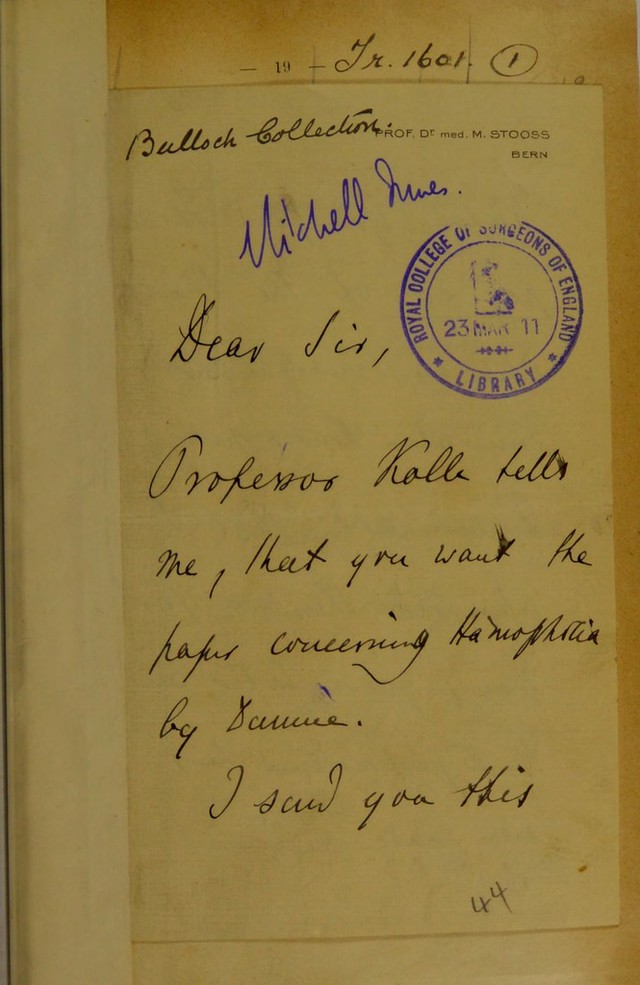 — 19 — Tr. 1601. 1
Bulloch Collection.
PROF. Dr med. M. STOOSS
BERN
Mitchell Innes.
ROYAL COLLEGE OF SURGEONS OF ENGLAND
23 MAR 11
* LIBRARY *
Dear Sir,
Professor Kolle tells
me, that you want the
paper concerning Hämophilia
by
I send you this
44